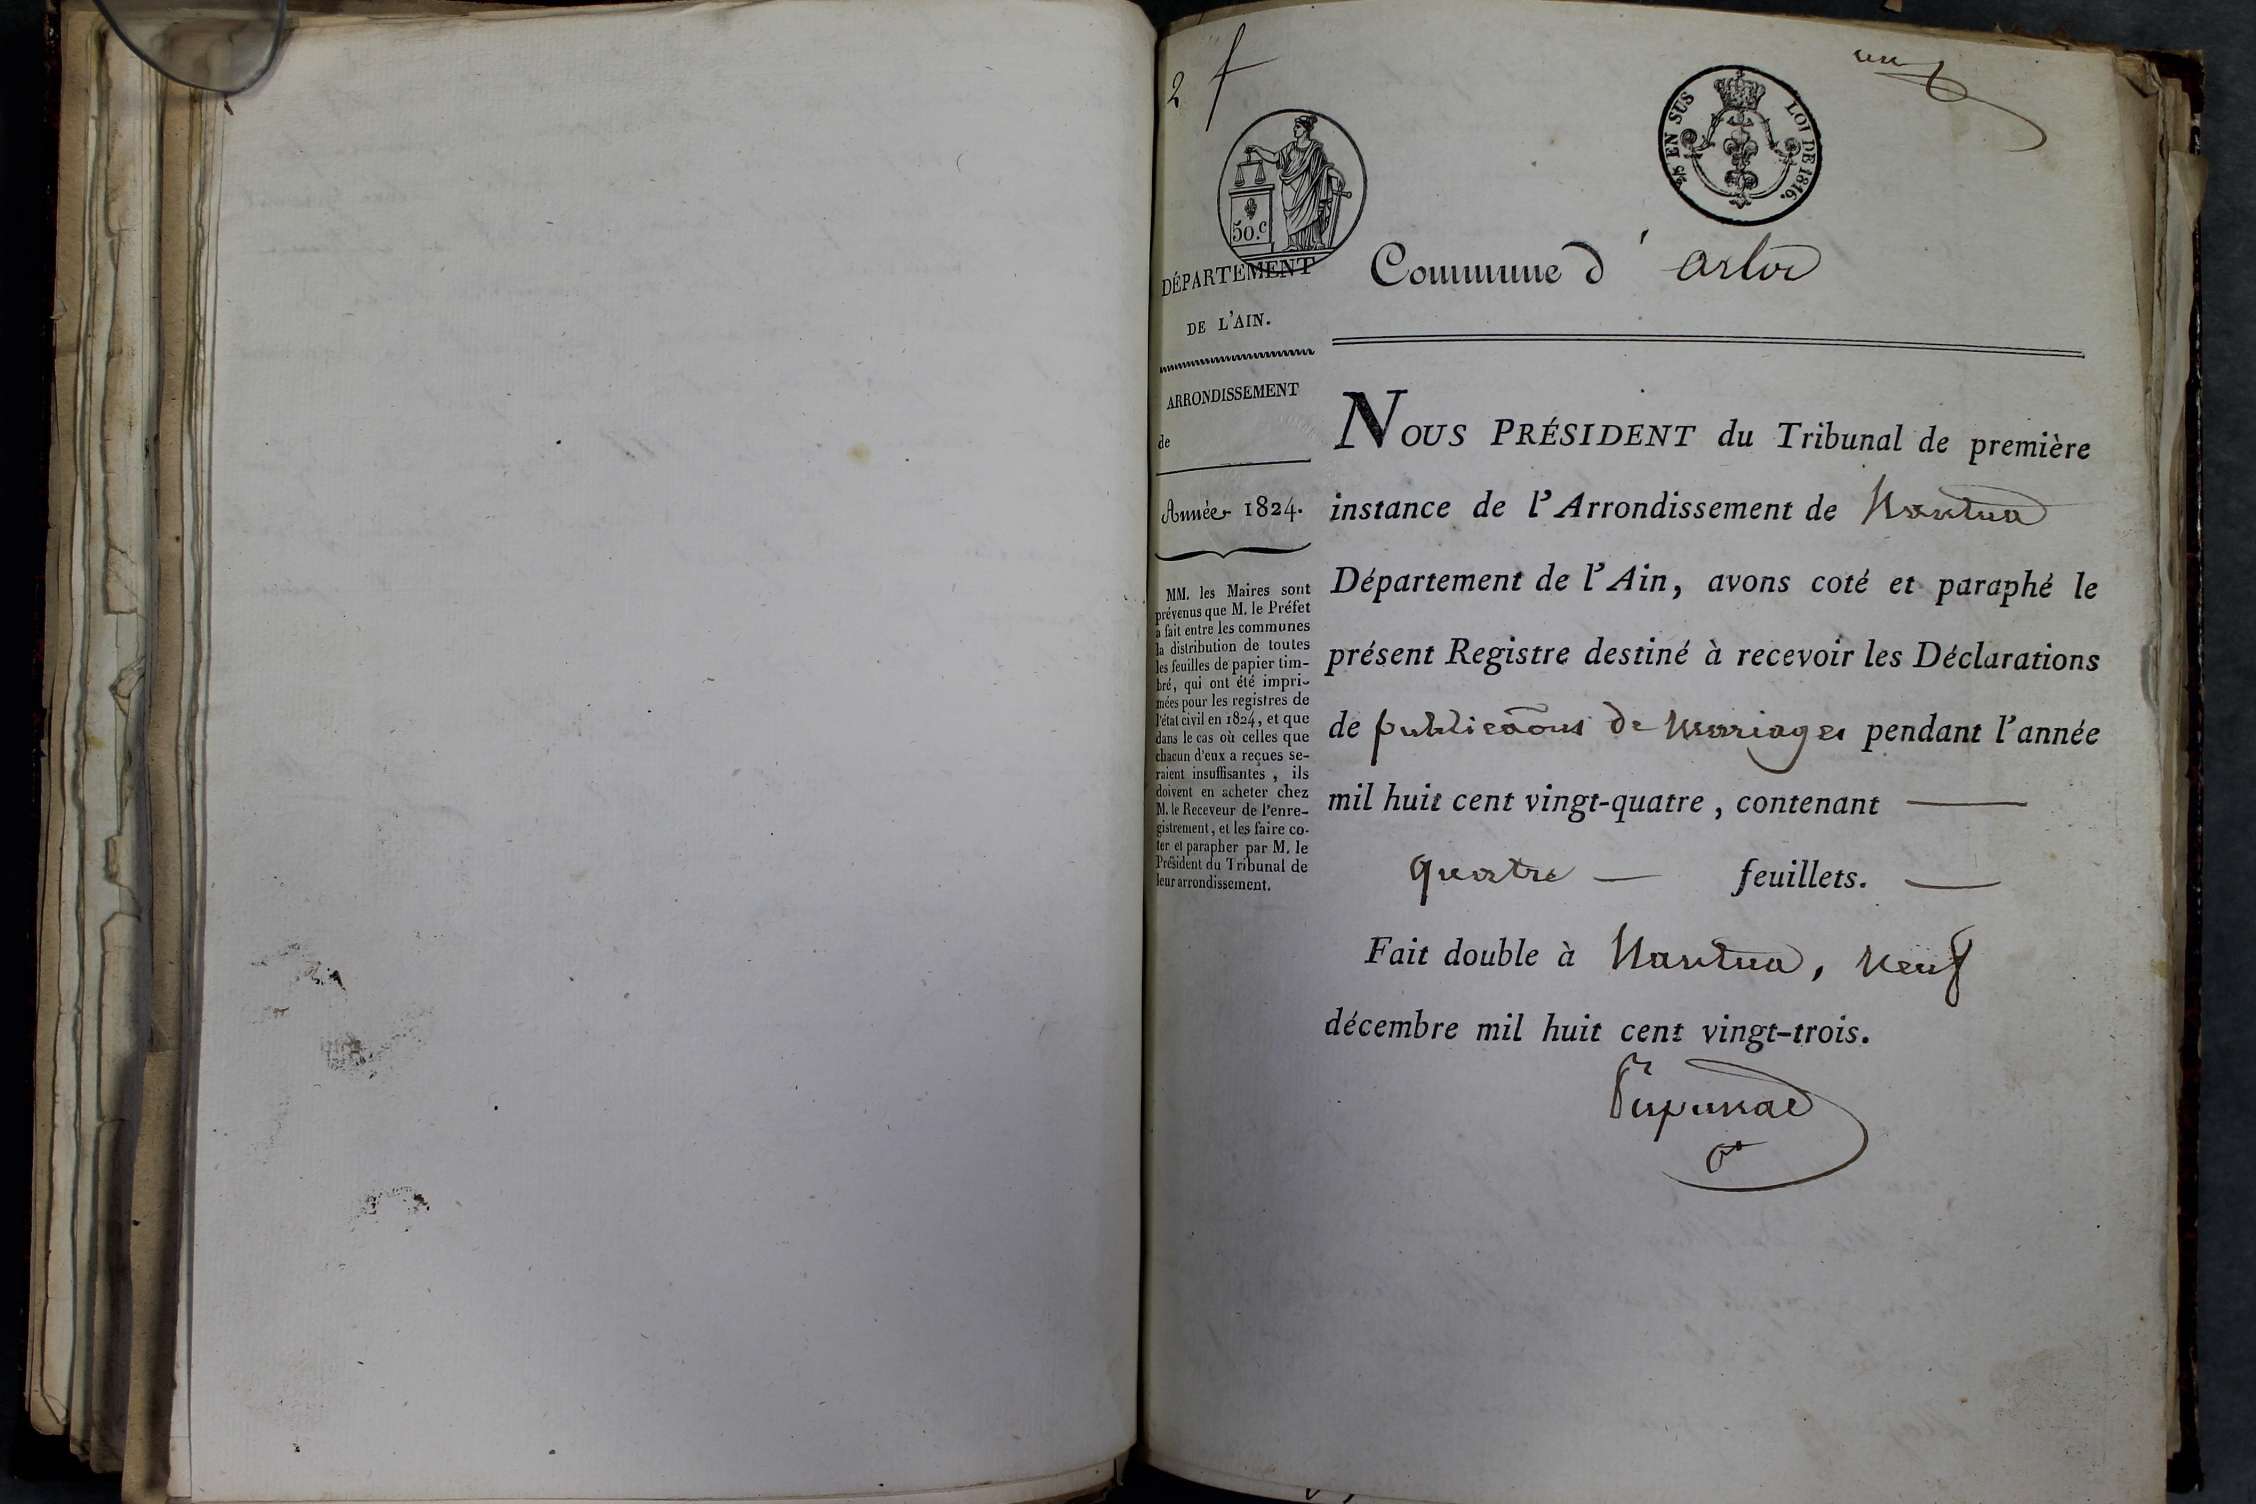 2 f
un
2/10 EN SUS LOI DE 1816.
50.c
DÉPARTEMENT
DE L'AIN.
ARRONDISSEMENT
de
Année 1824.
MM. les Maires sont
prévenus que M. le Préfet
a fait entre les communes
la distribution de toutes
les feuilles de papier tim-
bré, qui ont été impri-
mées pour les registres de
l'état civil en 1824, et que
dans le cas où celles que
chacun d'eux a reçues se-
raient insuffisantes, ils
doivent en acheter chez
M. le Receveur de l'enre-
gistrement, et les faire co-
ter et parapher par M. le
Président du Tribunal de
leur arrondissement.
Commune d' arlod
NOUS PRÉSIDENT du Tribunal de première
instance de l'Arrondissement de Nantua
Département de l'Ain, avons coté et paraphé le
présent Registre destiné à recevoir les Déclarations
de publicaõns de Mariages pendant l'année
mil huit cent vingt-quatre, contenant
quatre — feuillets. —
Fait double à Nantua, neuf
décembre mil huit cent vingt-trois.